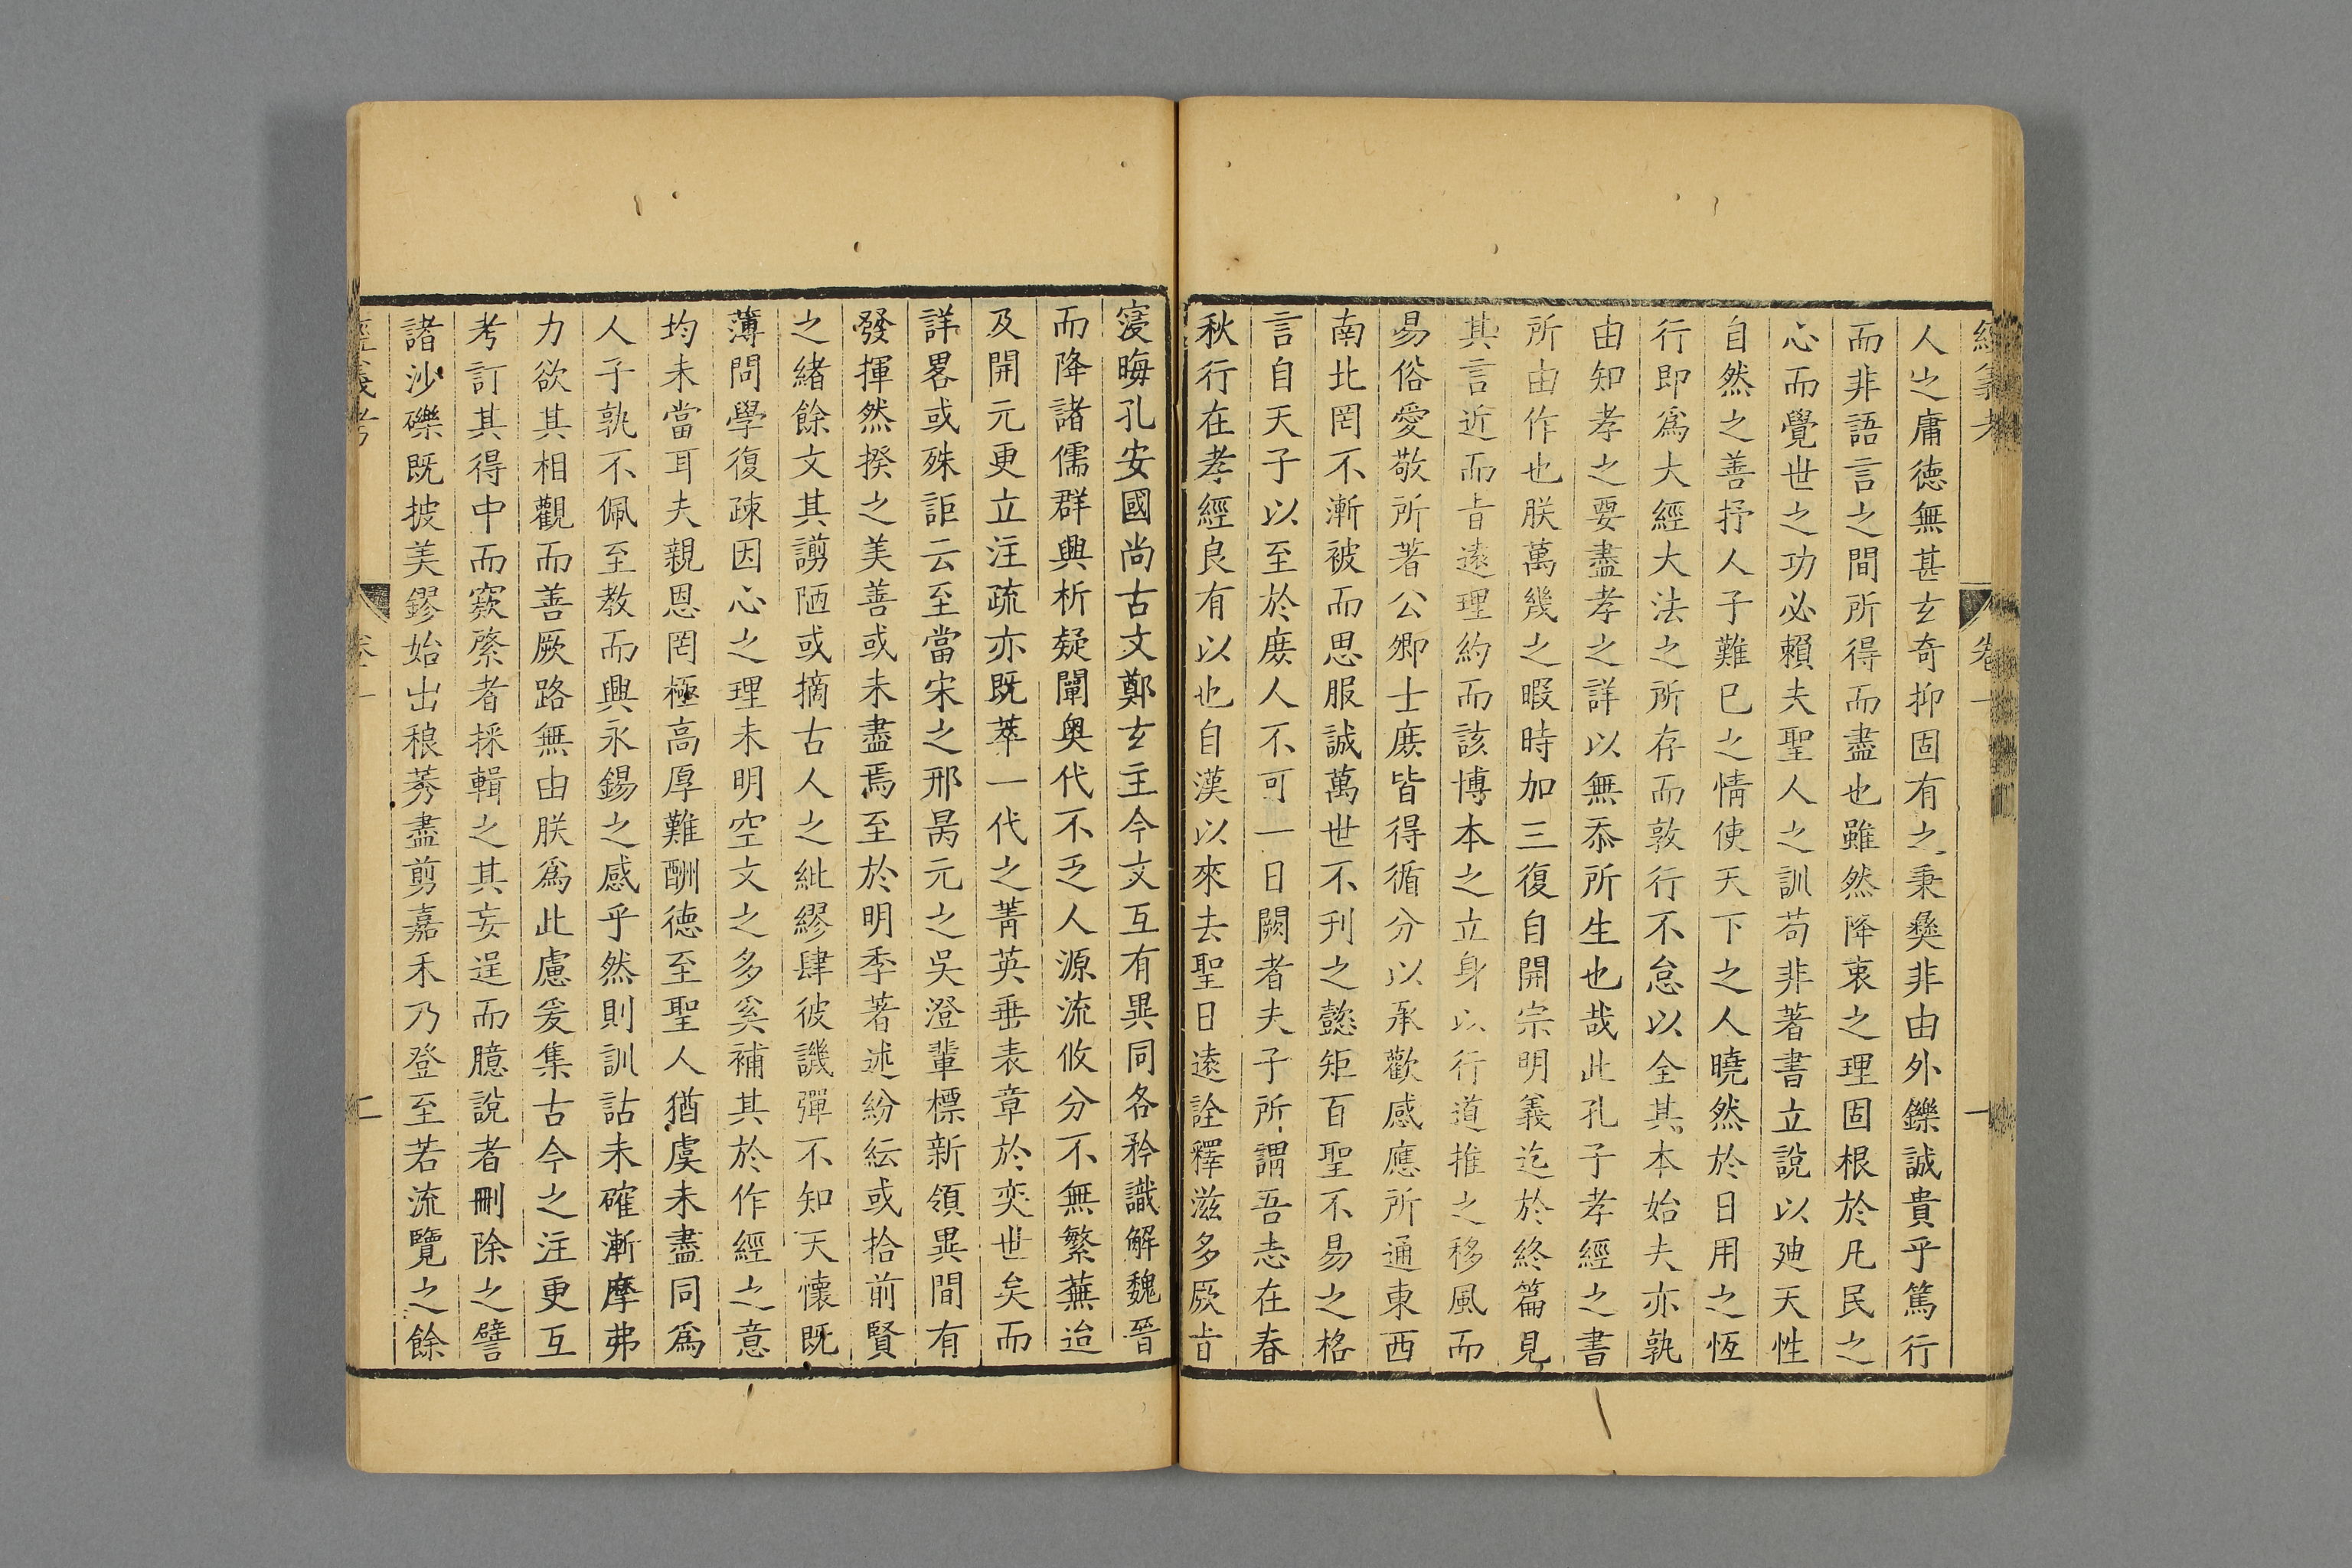 經義考 卷一 一
人之庸德無甚玄奇抑固有之秉彝非由外鑠誠貴乎篤行
而非語言之間所得而盡也雖然降衷之理固根於凡民之
心而覺世之功必賴夫聖人之訓苟非著書立說以廸天性
自然之善抒人子難已之情使天下之人曉然於日用之恆
行即爲大經大法之所存而敦行不怠以全其本始夫亦孰
由知孝之要盡孝之詳以無忝所生也哉此孔子孝經之書
所由作也朕萬幾之暇時加三復自開宗明義迄於終篇見
其言近而㫖遠理約而該博本之立身以行道推之移風而
易俗愛敬所著公卿士庶皆得循分以承歡感應所通東西
南北罔不漸被而思服誠萬世不刊之懿矩百聖不易之格
言自天子以至於庶人不可一日闕者夫子所謂吾志在春
秋行在孝經良有以也自漢以來去聖日遠詮釋滋多厥㫖
寖晦孔安國尚古文鄭玄主今文互有異同各矜識解魏晉
而降諸儒群興析疑闡奧代不乏人源流攸分不無繁蕪迨
及開元更立注疏亦既萃一代之菁英垂表章於奕世矣而
詳畧或殊詎云至當宋之邢昺元之吳澄輩標新領異間有
發揮然揆之美善或未盡焉至於明季著述紛紜或拾前賢
之緒餘文其謭陋或摘古人之紕繆肆彼譏彈不知天懷既
薄問學復疎因心之理未明空文之多奚補其於作經之意
均未當耳夫親恩罔極高厚難酬德至聖人猶虞未盡同爲
人子孰不佩至教而興永錫之感乎然則訓詁未確漸摩弗
力欲其相觀而善厥路無由朕爲此慮爰集古今之注更互
考訂其得中而窾綮者採輯之其妄逞而臆說者刪除之譬
諸沙礫既披美鏐始出稂莠盡剪嘉禾乃登至若流覽之餘
經義考 卷一 二